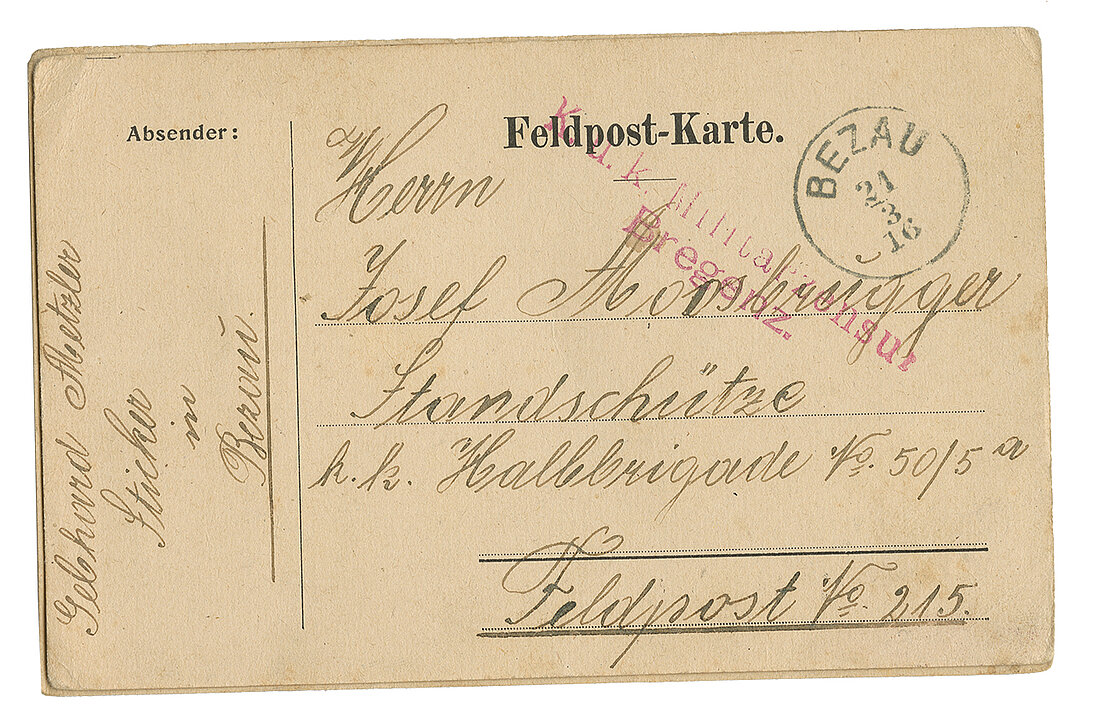 Absender:
Gebhard Metzler
Sticker
in
Bezau.
Feldpost-Karte.
K. u. k. Militärzensur
Bregenz.
BEZAU
21
3
16
Herrn
Josef Moosbrugger
Standschütze
k. k. Halbbrigade No. 50/5 a
Feldpost No. 215.